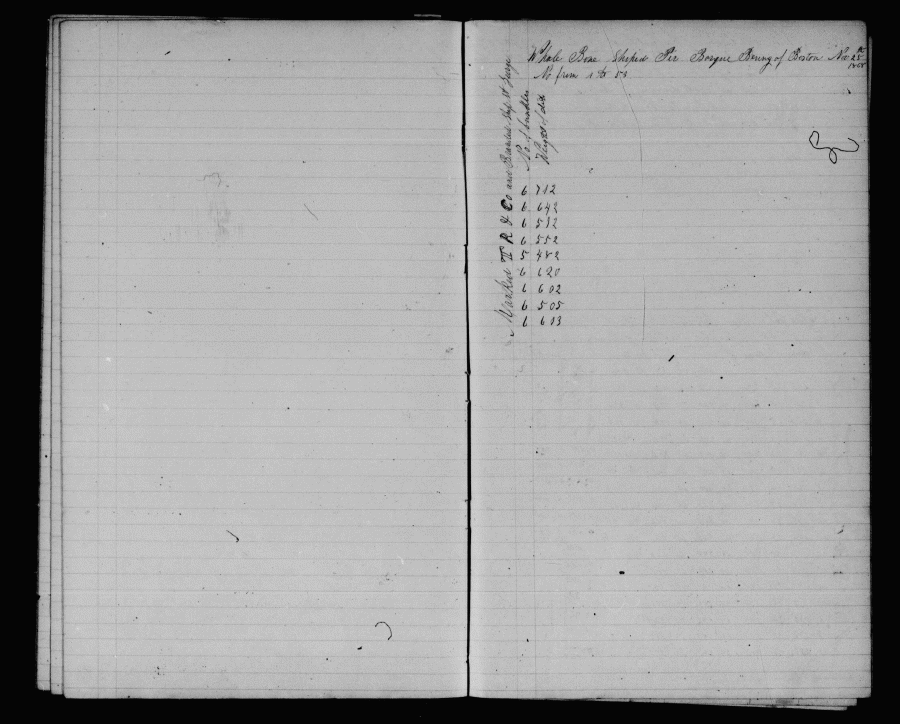 Whale Bone Shiped Per Barque Bering of Boston Nov 25th 1868
No from 1 to 53
Marked T R & Co and Branded Ship St George
No of bundles
Weight of do
6 712
6 642
6 532
6 552
5 482
6 620
6 602
6 505
6 613